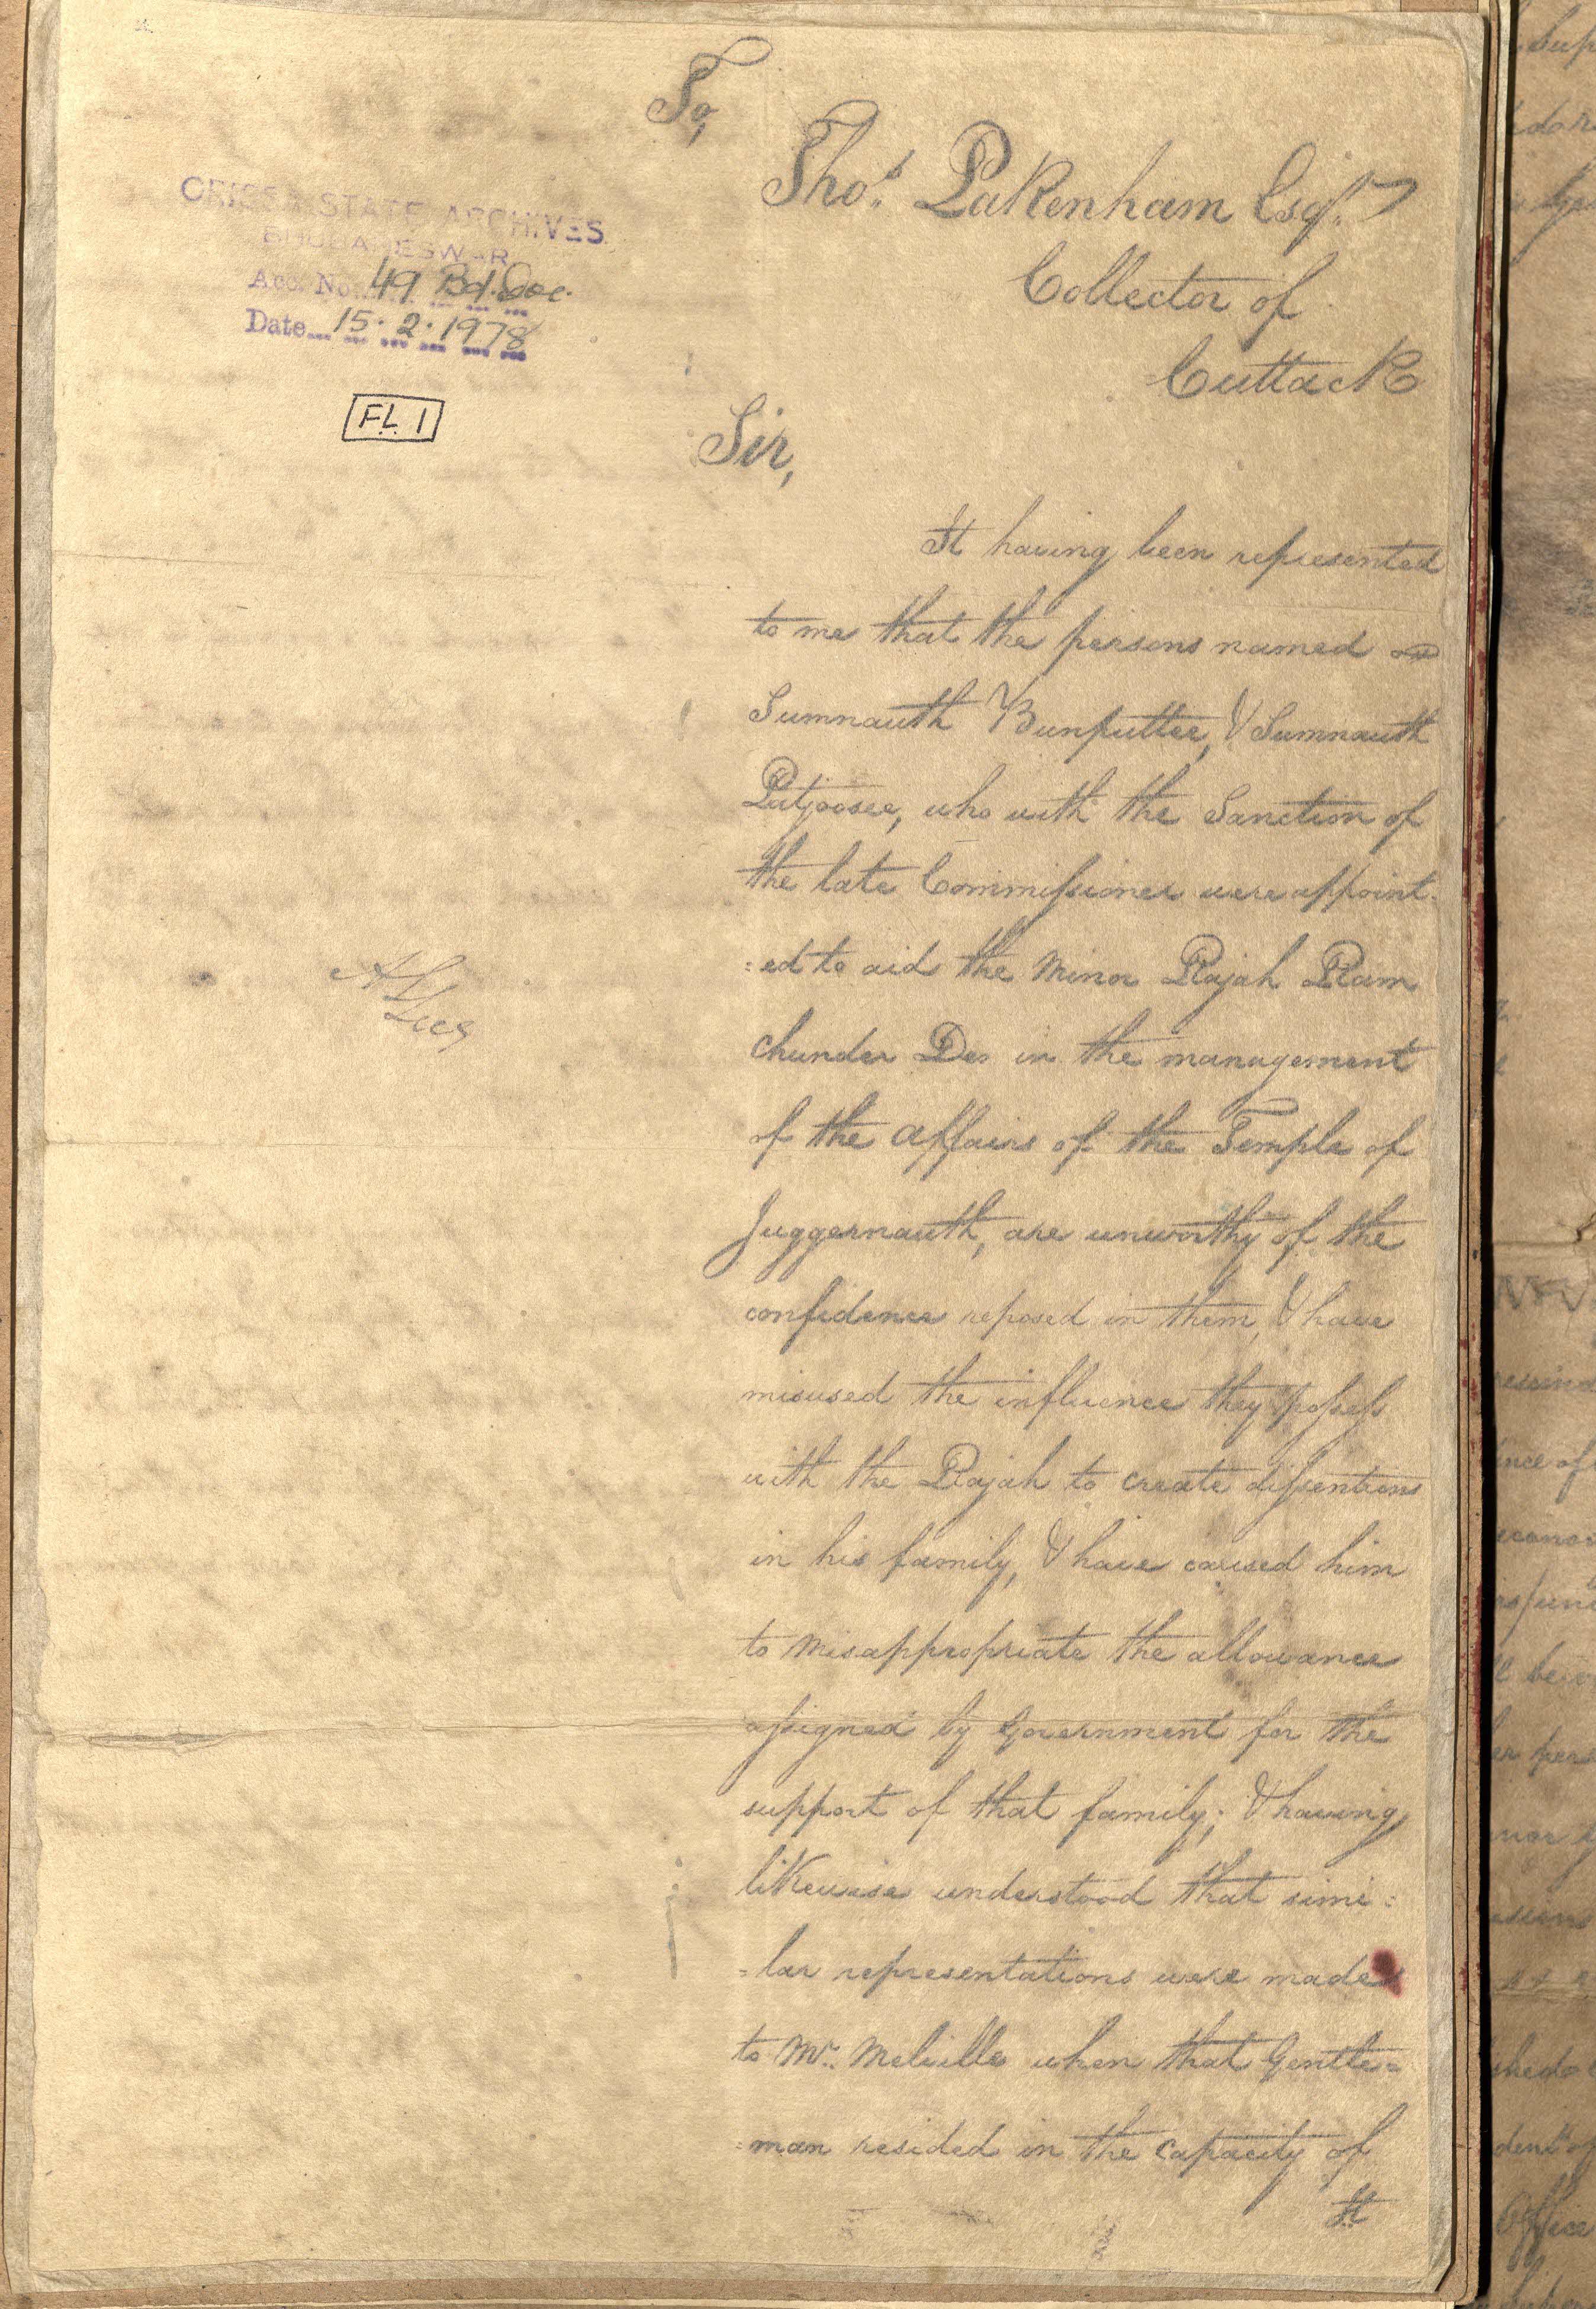 To,
Thos. Pakenham Esqr.
Collector of
Cuttack
ORISSA STATE ARCHIVES
BHUBANESWAR
Acc. No. 49 Bd. Doc.
Date 15.2.1978
F.L. 1
Sir,
It having been represented
to me that the persons named
Sumnauth Bunputtee, & Sumnauth
Putjosee, who with the Sanction of
the late Commissioner were appoint-
=ed to aid the Minor Rajah Ram
chunder Deo in the management
of the affairs of the Temple of
Juggernauth, are unworthy of the
confidence reposed in them, & have
misused the influence they possess
with the Rajah to create dissentions
in his family, & have caused him
to misappropriate the allowance
assigned by Government for the
support of that family; & having
likewise understood that simi=
=lar representations were made
to Mr. Melville when that Gentle=
=man resided in the capacity of